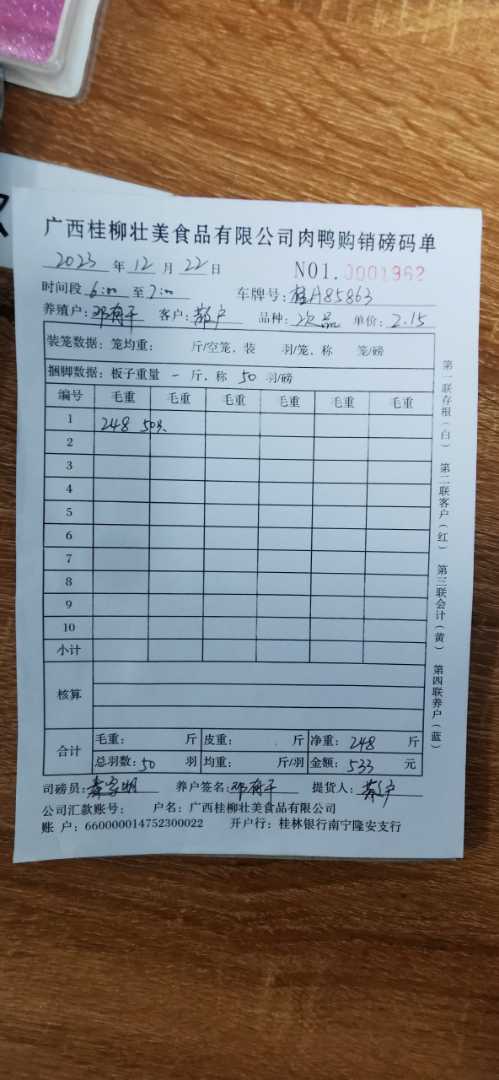 广西桂柳壮美食品有限公司肉鸭购销磅码单
2023 年 12 月 22 日 NO1. 0001362
时间段 6:00 至 7:00 车牌号: 桂A85863
养殖户: 邓有干 客户: 蔡户 品种: 次品 单价: 2.15
装笼数据: 笼均重: 斤/空笼, 装 羽/笼, 称 笼/磅
捆脚数据: 板子重量 一 斤, 称 50 羽/磅
编号 毛重 毛重 毛重 毛重 毛重 毛重
1 248 50羽
2
3
4
5
6
7
8
9
10
小计
核算
合计 毛重: 斤 皮重: 斤 净重: 248 斤
总羽数: 50 羽 均重: 斤/羽 金额: 533 元
司磅员: 养户签名: 邓有干 提货人: 蔡户
公司汇款账号: 户名: 广西桂柳壮美食品有限公司
账 户: 660000014752300022 开户行: 桂林银行南宁隆安支行
第一联存根(白) 第二联客户(红) 第三联会计(黄) 第四联养户(蓝)